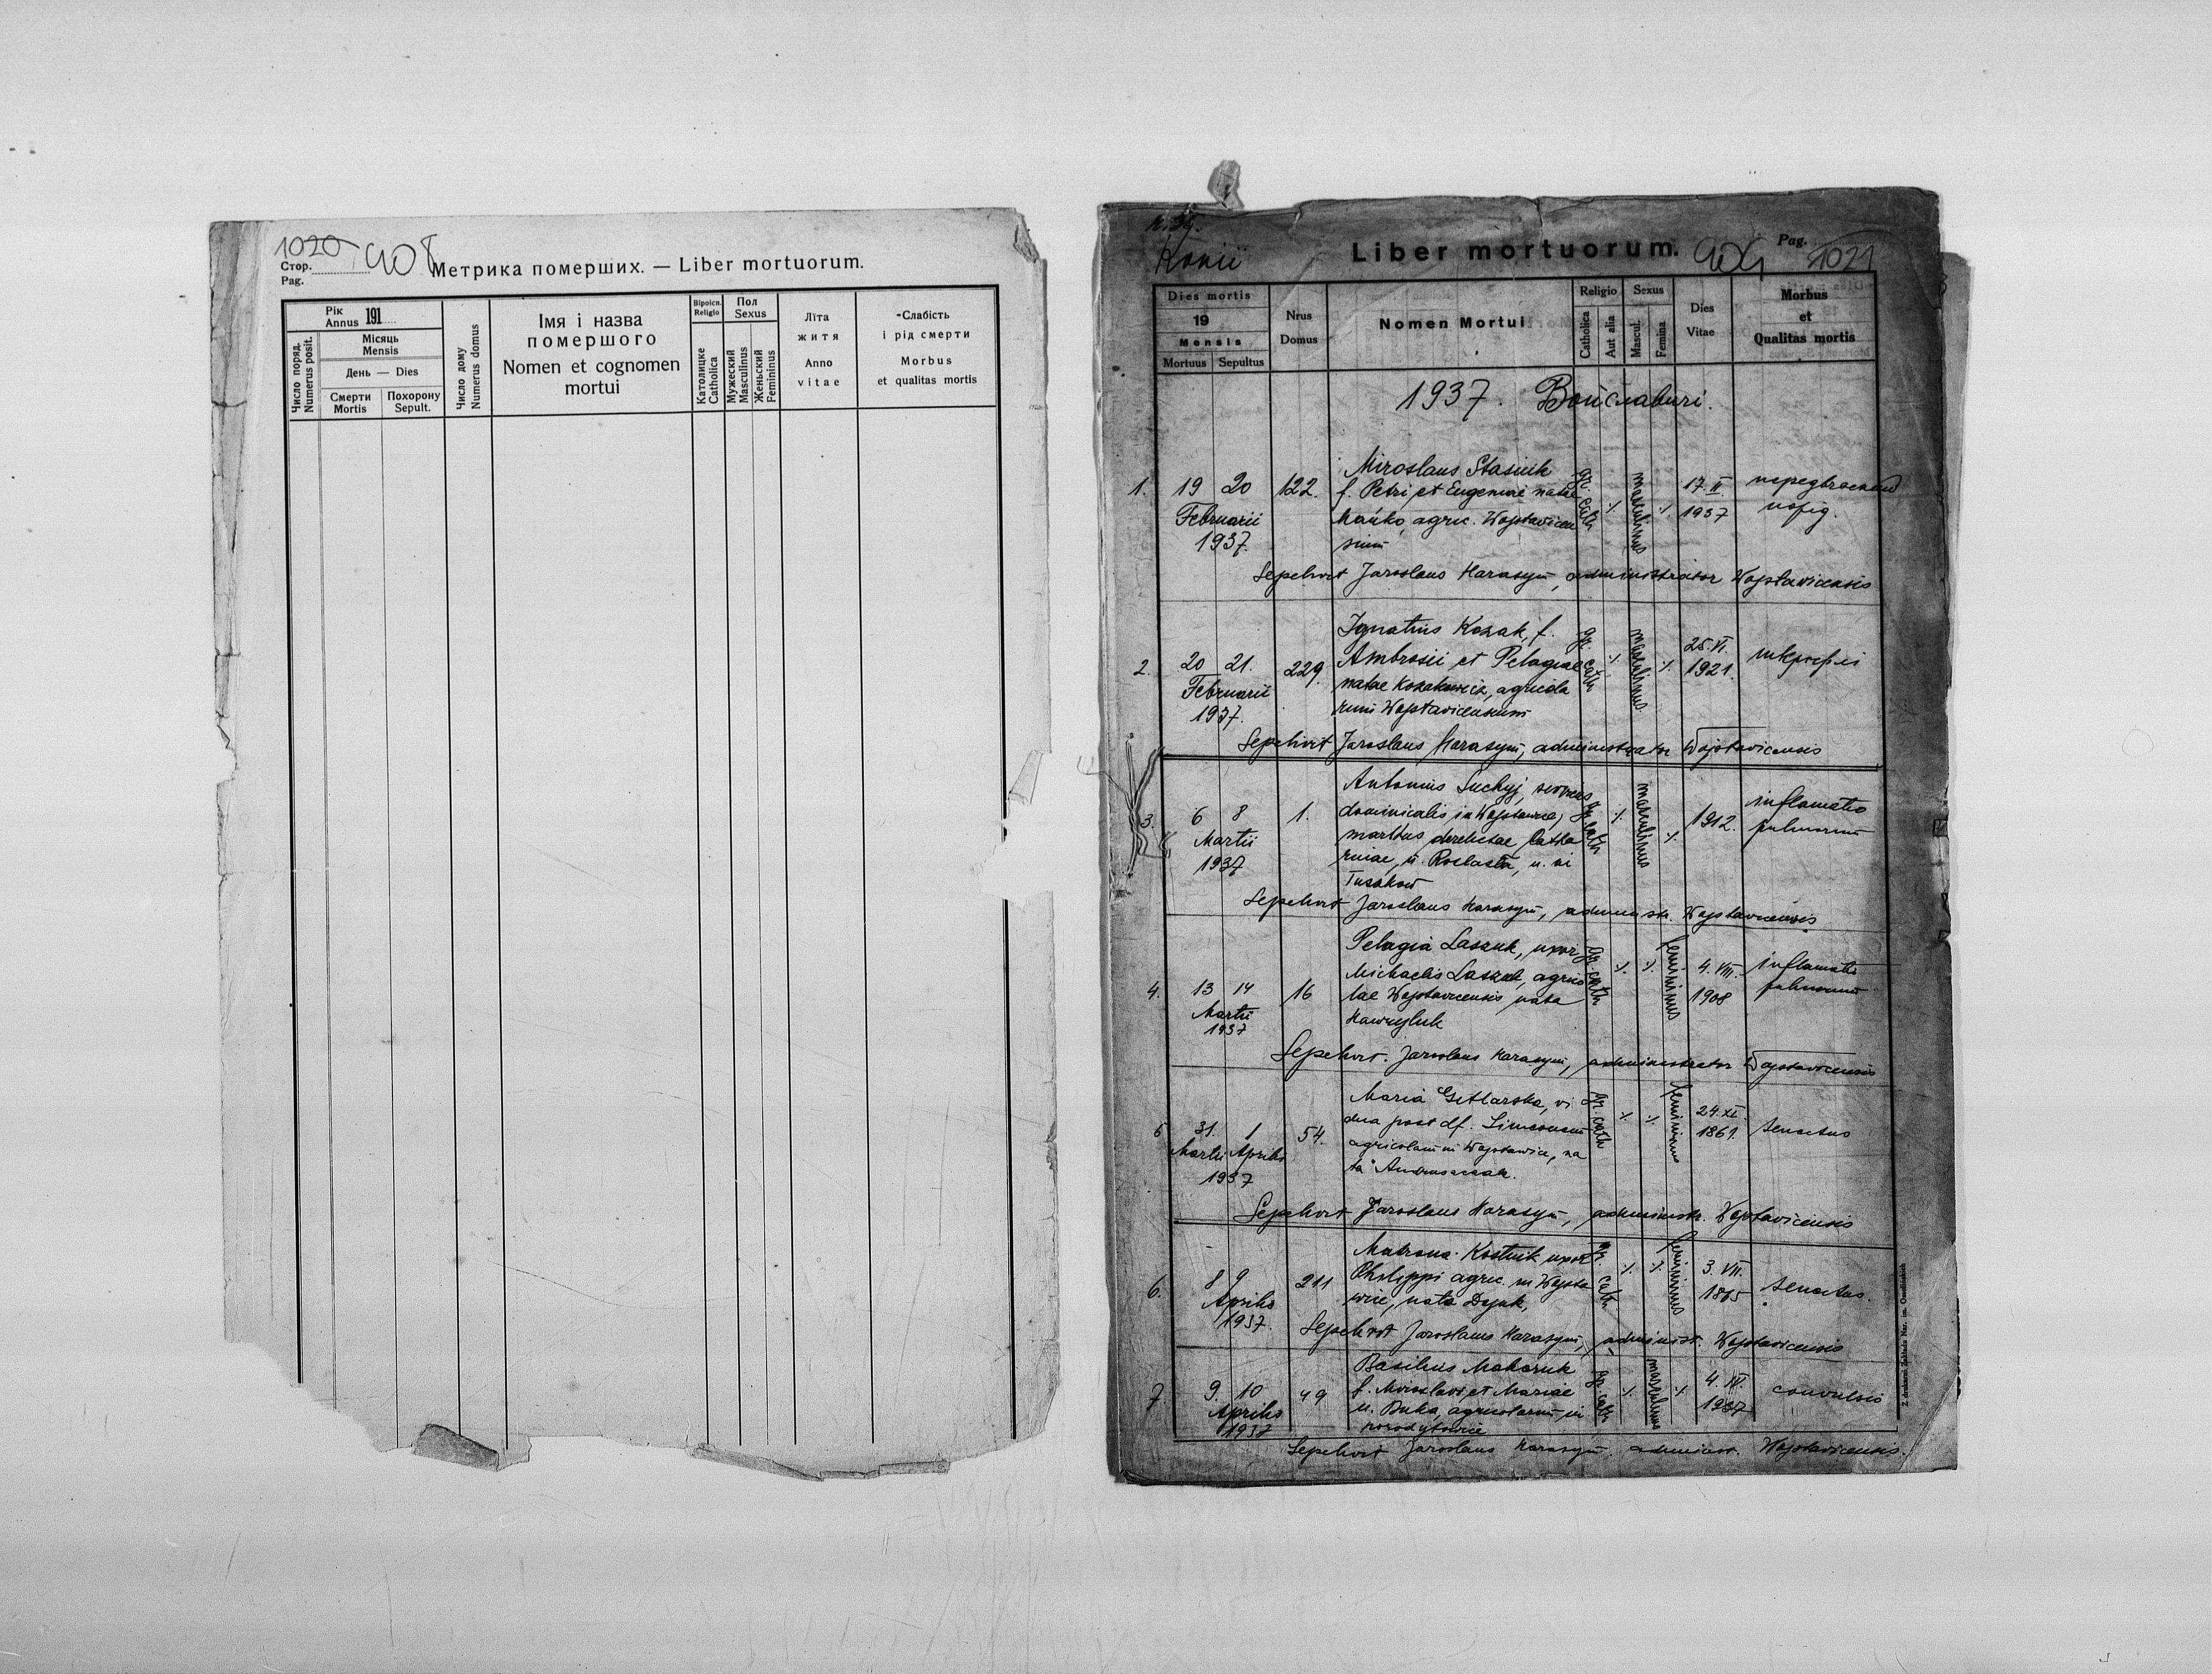 1020 408
Стор.
Pag.
Метрика померших. — Liber mortuorum.
Число поряд.
Numerus posit.
Рік
Annus 191
Місяць
Mensis
День — Dies
Смерти
Mortis
Похорону
Sepult.
Число дому
Numerus domus
Імя і назва
помершого
Nomen et cognomen
mortui
Віроісп.
Religio
Католицке
Catholica
Пол
Sexus
Мужеский
Masculinus
Женьский
Femininus
Літа
житя
Anno
vitae
Слабість
і рід смерти
Morbus
et qualitas mortis
Копії
Liber mortuorum.
409
Pag.
1021
Dies mortis
19
Mensis
Mortuus Sepultus
Nrus
Domus
Nomen Mortui
Religio
Catholica
Aut alia
Sexus
Mascul.
Femina
Dies
Vitae
Morbus
et
Qualitas mortis
1937. Войславичі.
1. 19 20 Februarii 1937. 122.
Miroslaus Stasiuk
f. Petri et Eugeniae natae
Mańko, agric. Wojslavicen
sium
gr. cath. ٪ masculinus ٪ 17. II. 1937
Sepelivit Jaroslaus Harasym, administrator Wojslavicensis
2. 20 21. Februarii 1937. 229.
Ignatius Kozak, f.
Ambrosii et Pelagiae
natae Kozakewicz, agricola
rum Wojslavicensium
gr. cath. ٪ masculinus ٪ 25. VI. 1921.
Sepelivit Jaroslaus Harasym, administrator Wojslavicensis
3. 6 8 Martii 1937 1.
Antonius Suchyj, servus
dominicalis in Wojslawice,
maritus derelictae Catha
rinae,
Tuszkow
gr. cath. ٪ masculinus ٪ 1912. inflamatio pulmonum
Sepelivit Jaroslaus Harasym, administr. Wojslavicensis
4. 13 14 Martii 1937 16
Pelagia Laszuk, uxor
Michaelis Laszuk, agrico
lae Wojslavicensis nata
Hawryluk
gr. cath. ٪ ٪ femininus 4. VIII. 1908 inflamatio pulmonum
Sepelivit. Jaroslaus Harasym, administrator Wojslavicensis
5 31. Martii 1 Aprilis 1937 54.
Maria Gitlarska, vi
dua post df. Simeonem
agricolam in Wojslawice, na
ta
gr. cath. ٪ ٪ femininus 24. XI. 1861. senectus
Sepelivit Jaroslaus Harasym, administr. Wojslavicensis
6. 8 9 Aprilis 1937. 211
Matrona Kostiuk uxor
Philippi agric. in Wojsla
wice, nata Dejuk,
gr. cath. ٪ ٪ femininus 3. VII. 1865 senectus.
Sepelivit Jaroslaus Harasym, administ. Wojslavicensis
7. 9. 10 Aprilis 1937 49
Basilius Makaruk
f. Miroslavi et Mariae
n. Duka, agricolarum in
Horodylowice
gr. cath. ٪ masculinus ٪ 4. IV. 1937 convulsio
Sepelivit Jaroslaus Harasym. administ. Wojslavicensis.